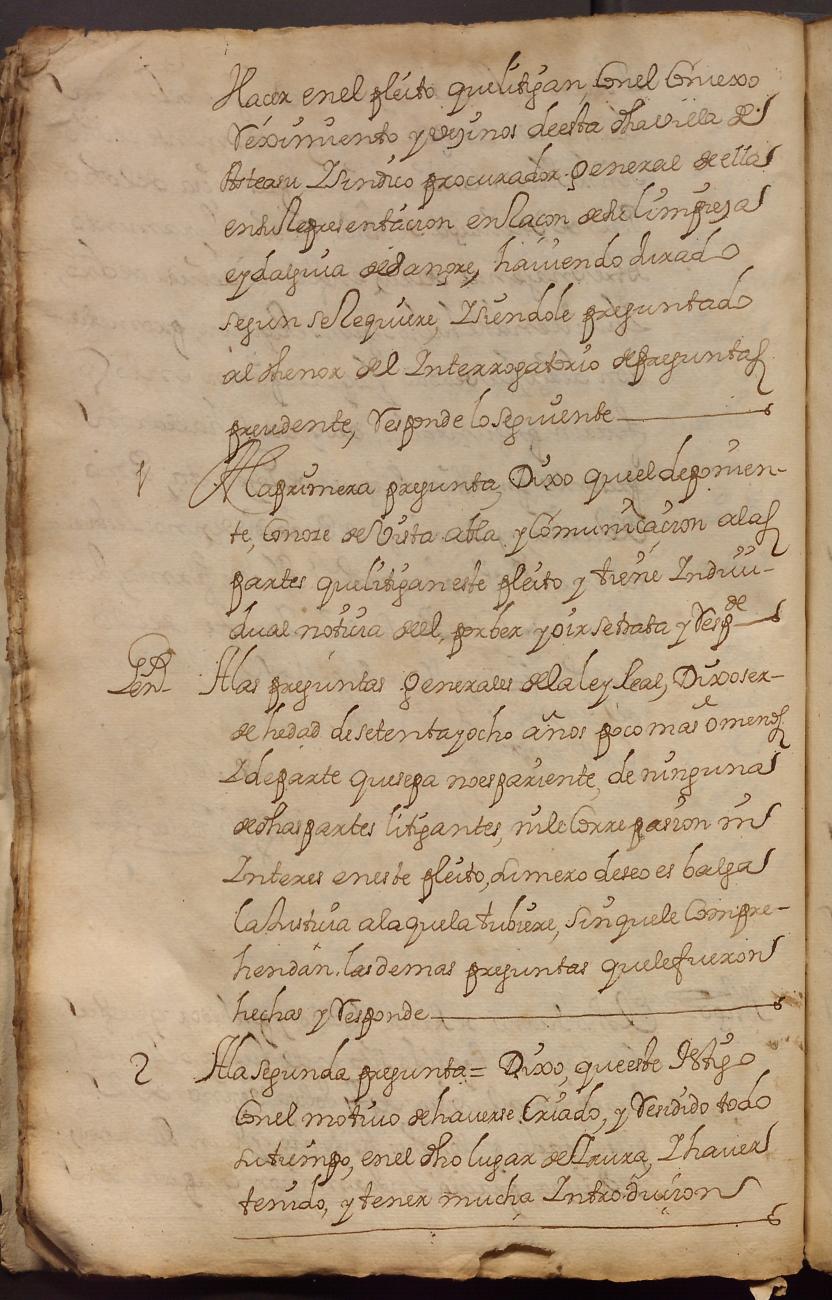 Hacer en el pleito que litigan, Con el Conzexo
Reximiento y vezinos de esta dha villa de
Asteasu Y Sindico procurador General de ella
en su Representacion en Raçon de su limpieza
e ydalguia de Sangre, haviendo Jurado
segun se Requiere, Y siendole preguntado
al thenor del Interrogatorio de preguntas
prezedente, Responde lo seguiente
1 A la primera pregunta, Dixo que el deponien-
te, Conoze de Vista abla y Comunicacion a las
partes que litigan este pleito y tiene Indivi-
dual noticia del, por ber y oir se trata y Respde
Gen A las preguntas Generales de la ley Real, Dixo ser
de hedad de setenta y ocho años poco mas o menos
Y de parte que sepa no es pariente, de ninguna
de dhas partes litigantes, ni le Corre pasion ni
Interes en este pleito, su mero deseo es balga
la Justicia a la que la tubiere, sin que le Compre-
hendan, las demas preguntas que le fueron
hechas y Responde
2 A la segunda pregunta = Dixo, que este testigo
Con el motivo de haverse Criado, y Residido todo
su tiempo, en el dho lugar de Irura, Y haver
tenido, y tener mucha Introducion